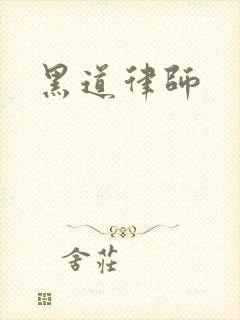 黑道律師
舍莊